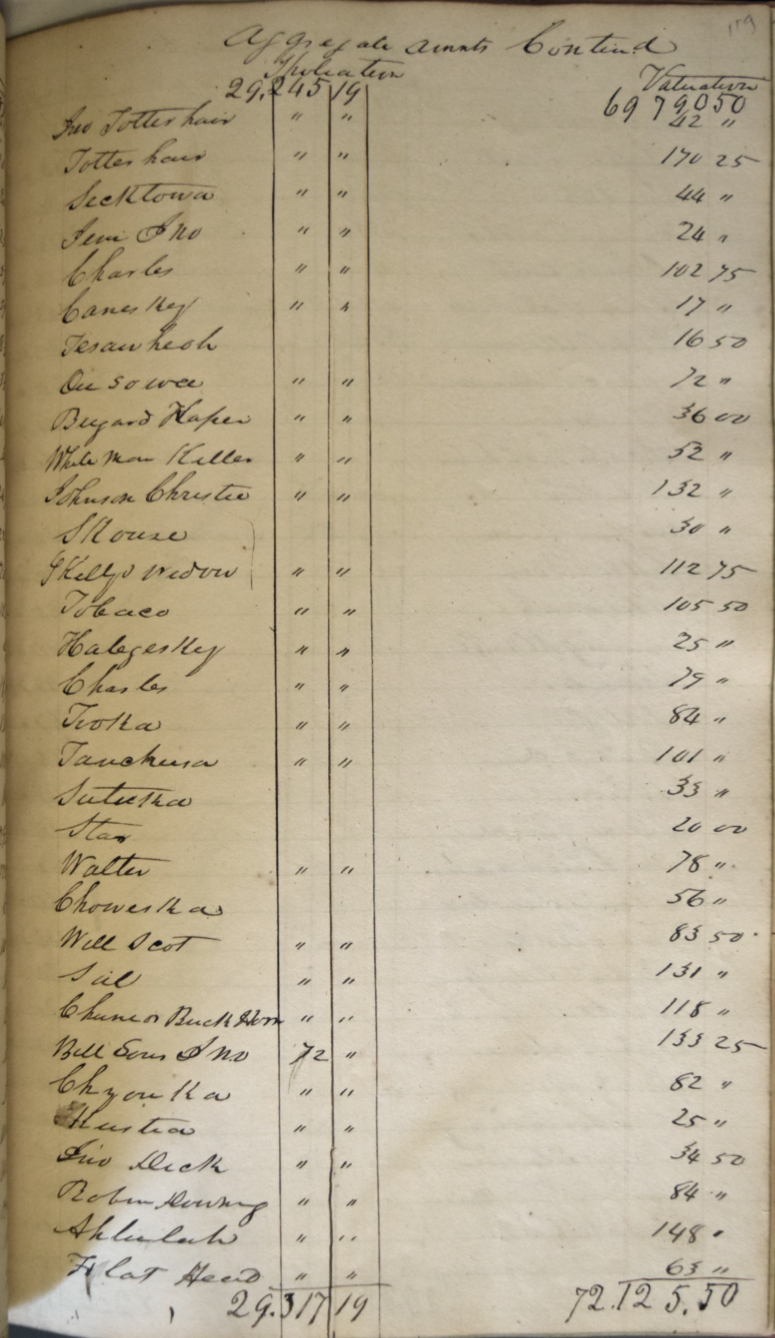 119
Aggregate amnts Contind
Spoliation Valuation
29.245 19 69 790 50
Jno Totterhair " " 42 "
Totterhair " " 170 25
Secktowa " " 44 "
Jim Jno " " 24 "
Charles " " 102 75
Caneskey " " 17 "
Tesauheoh 16 50
Ou so wee " " 72 "
Buzard Flaper " " 36 00
White Man Killer " " 52 "
Johnson Christie " " 132 "
Skouse 30 "
Widow " " 112 75
Tobaco " " 105 50
Halegeskey " " 25 "
Charles " " 79 "
Tuoka " " 84 "
Tauchusa " " 101 "
Sutuka 33 "
Star 20 00
Walter " " 78 "
Choweska 56 "
Will Scot " " 83 50
Sal " " 131 "
Chune or Buck Horn " " 118 "
Bill Sour Jno 72 " 133 25
Chyouka " " 82 "
Kustia " " 25 "
Jno Dick " " 34 50
Robin Downing " " 84 "
Ahlulah " " 148 "
Flat Head " " 63 "
29.317 19 72.125.50